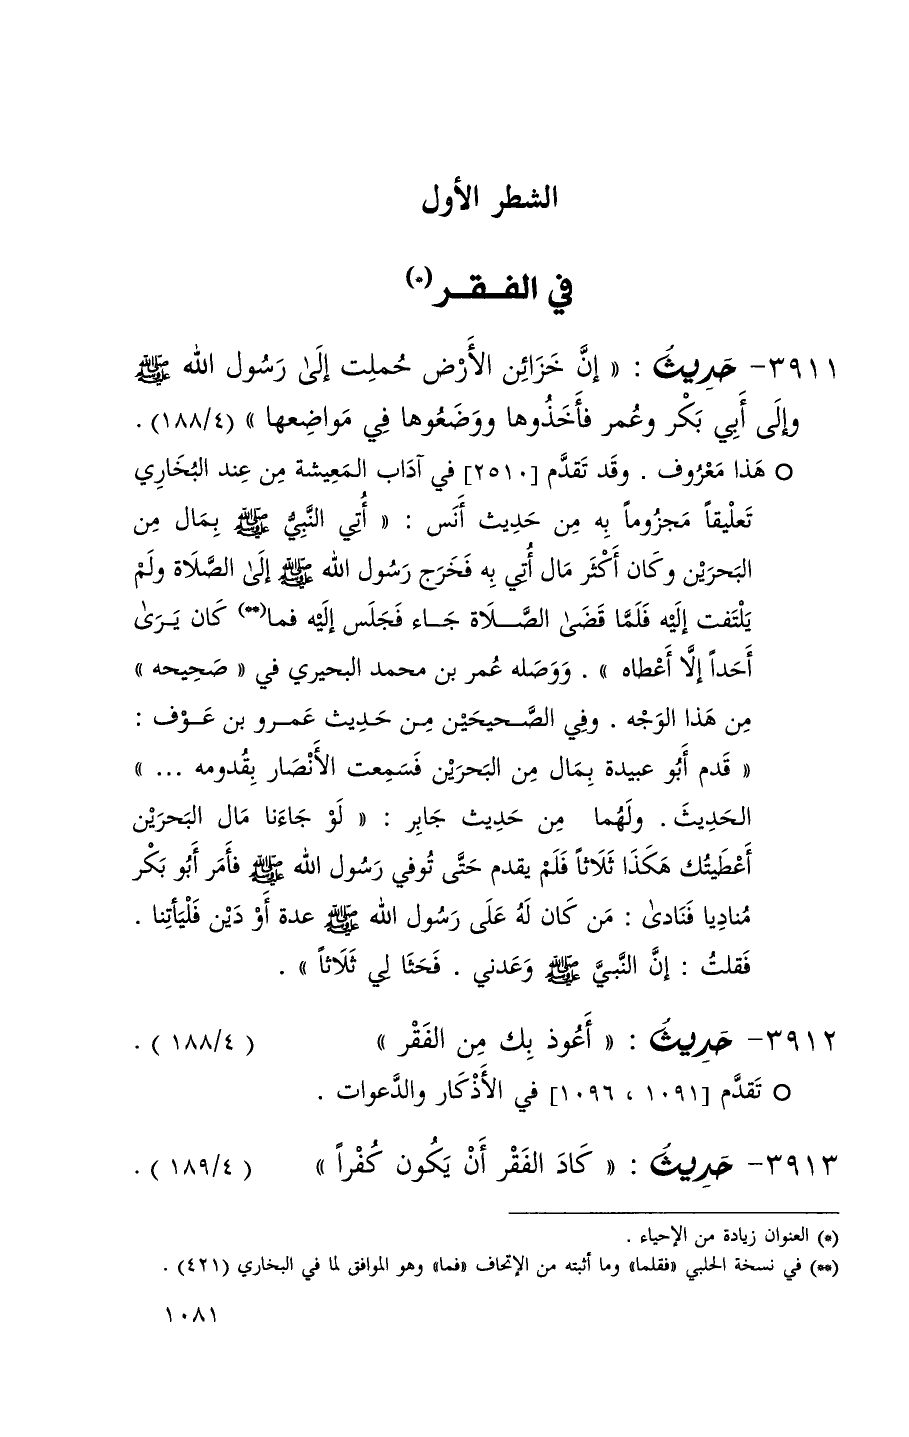 الشطر الأول
في الفـقـر(*)
٣٩١١- حَدِيثُ : « إنَّ خَزَائِن الأَرْض حُملِت إلَىٰ رَسُول الله ﷺ
وإلَى أَبِي بَكْر وعُمر فأَخَذُوها ووَضَعُوها فِي مَواضِعها » (١٨٨/٤) .
○ هَذا مَعْرُوف . وقَد تَقدَّم [٢٥١٠] في آدَاب المَعِيشة مِن عِند البُخَارِي
تَعلْيقاً مَجزُوماً بِه مِن حَدِيث أَنَس : « أُتِي النَّبِيُّ ﷺ بِمَال مِن
البَحرَيْن وكَان أَكْثَر مَال أُتِي بِه فَخَرَج رَسُول الله ﷺ إلَىٰ الصَّلَاة ولَمْ
يَلْتَفت إلَيْه فَلَمَّا قَضَىٰ الصَّـلَاة جَـاء فَجَلَس إلَيْه فما(**) كَان يَـرَىٰ
أَحَداً إلَّا أَعْطاه » . وَوَصَله عُمر بن محمد البحيري في « صَحِيحه »
مِن هَذا الوَجْه . وفِي الصَّـحيحَيْن مِـن حَـدِيث عَمـرو بن عَـوْف :
« قَدم أَبُو عبيدة بِمَال مِن البَحرَيْن فَسَمِعت الأَنْصَار بِقُدومه ... »
الحَدِيثَ . ولَهُما مِن حَدِيث جَابِر : « لَوْ جَاءَنا مَال البَحرَيْن
أَعْطَيتُك هَكَذَا ثَلَاثاً فَلَمْ يقدم حَتَّى تُوفي رَسُول الله ﷺ فأَمَر أَبُو بَكْر
مُنادِيا فَنَادىٰ : مَن كَان لَهُ عَلَى رَسُول الله ﷺ عدة أَوْ دَيْن فَلْيَأتِنا .
فَقلتُ : إنَّ النَّبيَّ ﷺ وَعَدني . فَحَثَا لِي ثَلَاثاً » .
٣٩١٢- حَدِيثُ : « أَعُوذ بِك مِن الفَقْر » ( ١٨٨/٤ ) .
○ تَقدَّم [١٠٩١ ، ١٠٩٦] في الأَذْكَار والدَّعوات .
٣٩١٣- حَدِيثُ : « كَادَ الفَقْر أَنْ يَكُون كُفْراً » ( ١٨٩/٤ ) .
(*) العنوان زيادة من الإحياء .
(**) في نسخة الحلبي «فقلما» وما أثبته من الإتحاف «فما» وهو الموافق لما في البخاري (٤٢١) .
١٠٨١